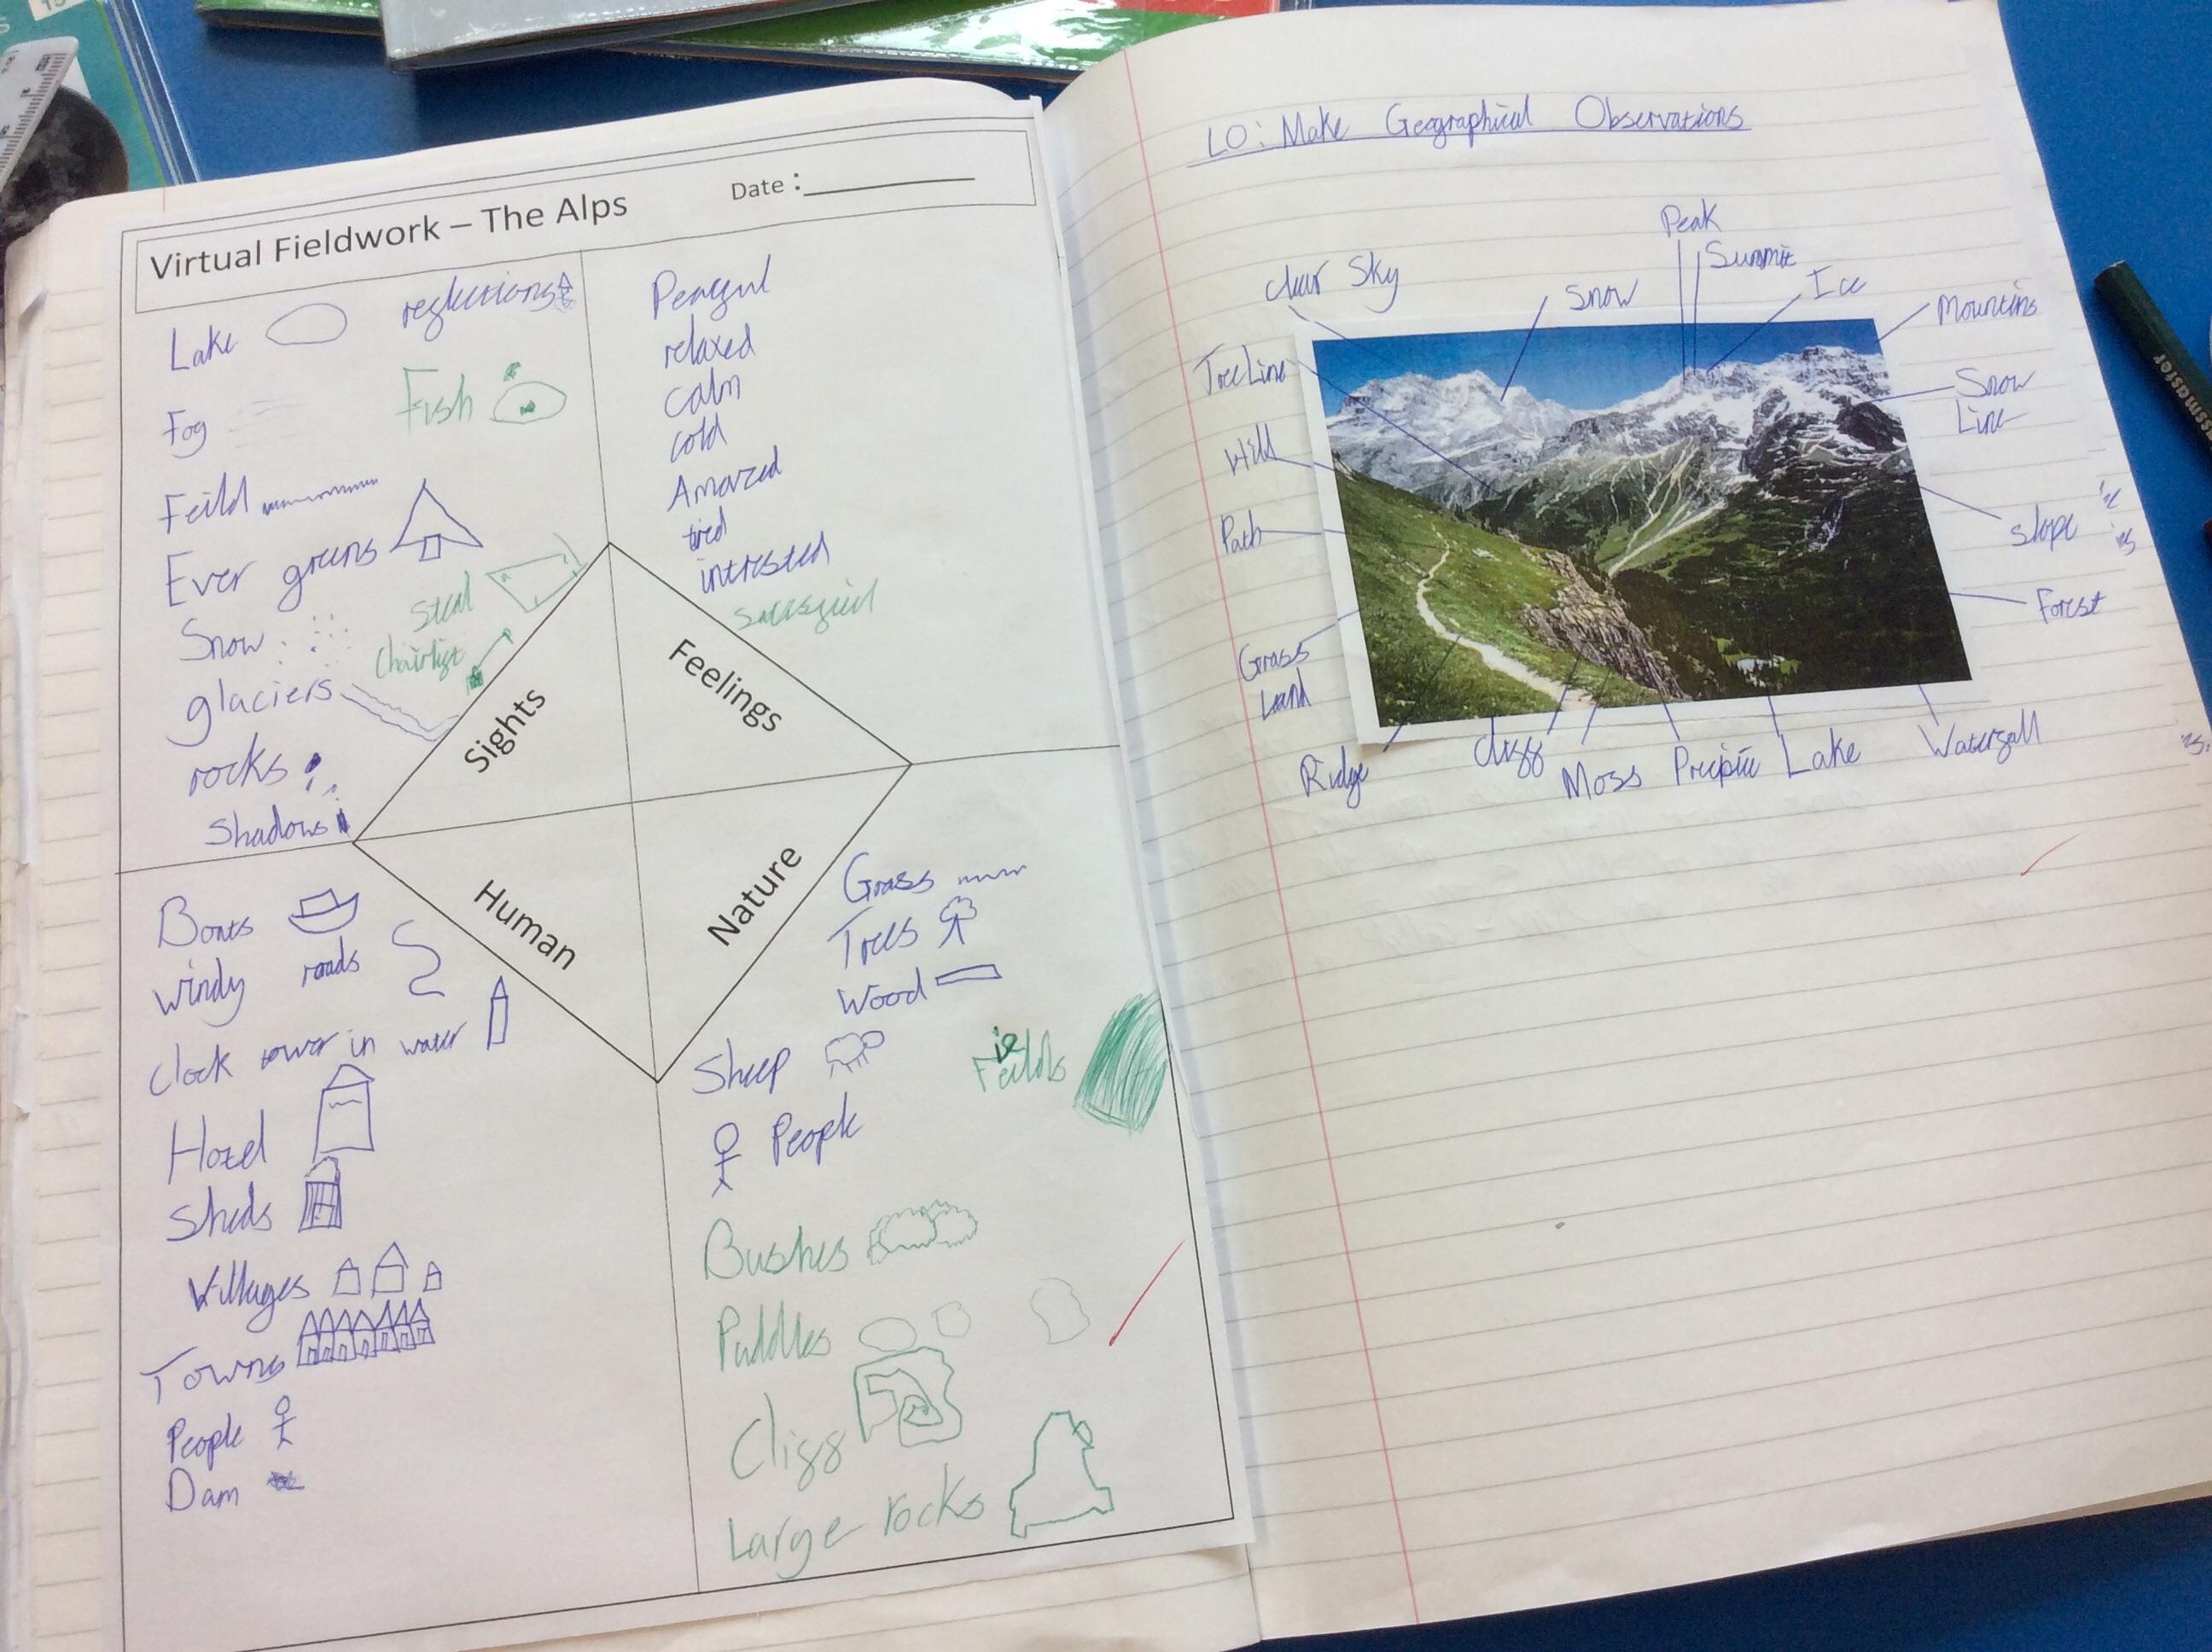 Virtual Fieldwork – The Alps
Date : 
Lake
reglections
Fish
Fog
Feild
Ever greens
Steal
Snow
Chairligt
glaciers
rocks
Shadows
Sights
Peacgul
relaxed
calm
cold
Amazed
tired
intrested
Feelings
Boats
windy roads
Clock tower in water
Hotel
Sheds
Villages
Towns
People
Dam
Human
Nature
Grass
Trees
Wood
Sheep
Feilds
ie
People
Bushes
Puddles
Cligg
Large rocks
LO: Make Geographical Observations
Peak
Summit
Clear Sky
Snow
Ice
Mountins
Tree Line
Snow
Line
Hill
Path
Slope
Forest
Grass
Land
Ridge
cligg
Moss
Lake
Watergall